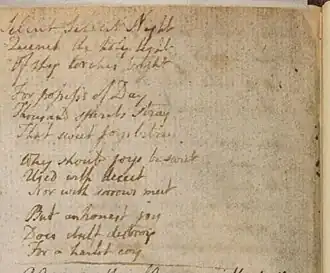 Silent Silent Night
Quench the holy light
Of thy torches bright

For possess'd of Day
Thousand spirits stray
That sweet joys betray

Why should joys be sweet
Used with deceit
Nor with sorrows meet

But an honest joy
Does itself destroy
For a harlot coy